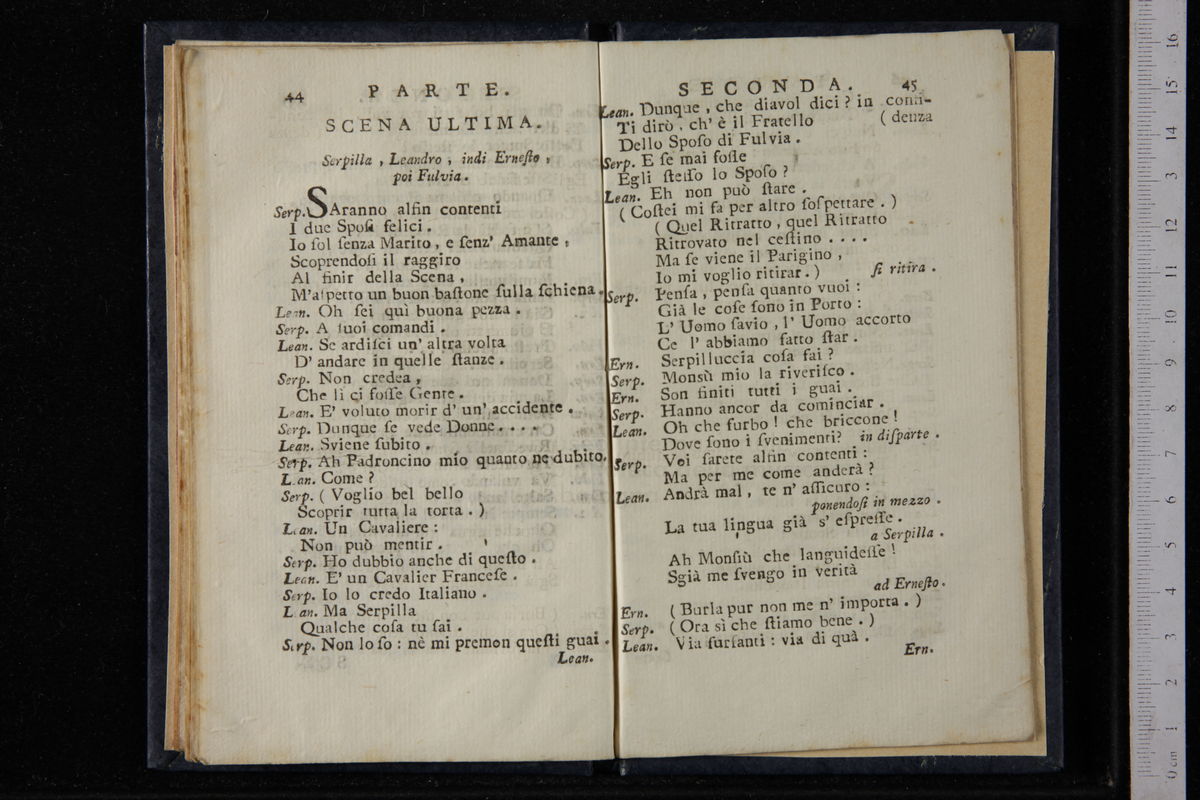 44 PARTE.
SCENA ULTIMA.
Serpilla , Leandro , indi Erneſto ,
poi Fulvia .
Serp. SAranno alfin contenti
I due Spoſi felici .
Io ſol ſenza Marito , e ſenz' Amante ,
Scoprendoſi il raggiro
Al finir della Scena ,
M'aſpetto un buon baſtone ſulla ſchiena .
Lean. Oh ſei quì buona pezza .
Serp. A ſuoi comandi .
Lean. Se ardiſci un' altra volta
D' andare in quelle ſtanze .
Serp. Non credea ,
Che lì ci foſſe Gente .
Lean. E' voluto morir d' un' accidente .
Serp. Dunque ſe vede Donne . . . .
Lean. Sviene ſubito .
Serp. Ah Padroncino mio quanto ne dubito.
Lean. Come ?
Serp. ( Voglio bel bello
Scoprir tutta la torta . )
Lean. Un Cavaliere :
Non può mentir .
Serp. Ho dubbio anche di queſto .
Lean. E' un Cavalier Franceſe .
Serp. Io lo credo Italiano .
Lean. Ma Serpilla
Qualche coſa tu ſai .
Serp. Non lo ſo : nè mi premon queſti guai .
Lean.
SECONDA. 45
Lean. Dunque , che diavol dici ? in confi-
Ti dirò , ch' è il Fratello ( denza
Dello Spoſo di Fulvia .
Serp. E ſe mai foſſe
Egli ſteſſo lo Spoſo ?
Lean. Eh non può ſtare .
( Coſtei mi fa per altro ſoſpettare . )
( Quel Ritratto , quel Ritratto
Ritrovato nel ceſtino . . . .
Ma ſe viene il Parigino ,
Io mi voglio ritirar . ) ſi ritira .
Serp. Penſa , penſa quanto vuoi :
Già le coſe ſono in Porto :
L' Uomo ſavio , l' Uomo accorto
Ce l' abbiamo fatto ſtar .
Ern. Serpilluccia coſa fai ?
Serp. Monsù mio la riveriſco .
Ern. Son finiti tutti i guai .
Serp. Hanno ancor da cominciar .
Lean. Oh che furbo ! che briccone !
Dove ſono i ſvenimenti? in diſparte .
Serp. Voi ſarete alfin contenti :
Ma per me come anderà ?
Lean. Andrà mal , te n' aſſicuro :
ponendoſi in mezzo .
La tua lingua già s' eſpreſſe .
a Serpilla .
Ah Monſiù che languideſſe !
Sgià me ſvengo in verità
ad Erneſto .
Ern. ( Burla pur non me n' importa . )
Serp. ( Ora sì che ſtiamo bene . )
Lean. Via furfanti : via di quà .
Ern.